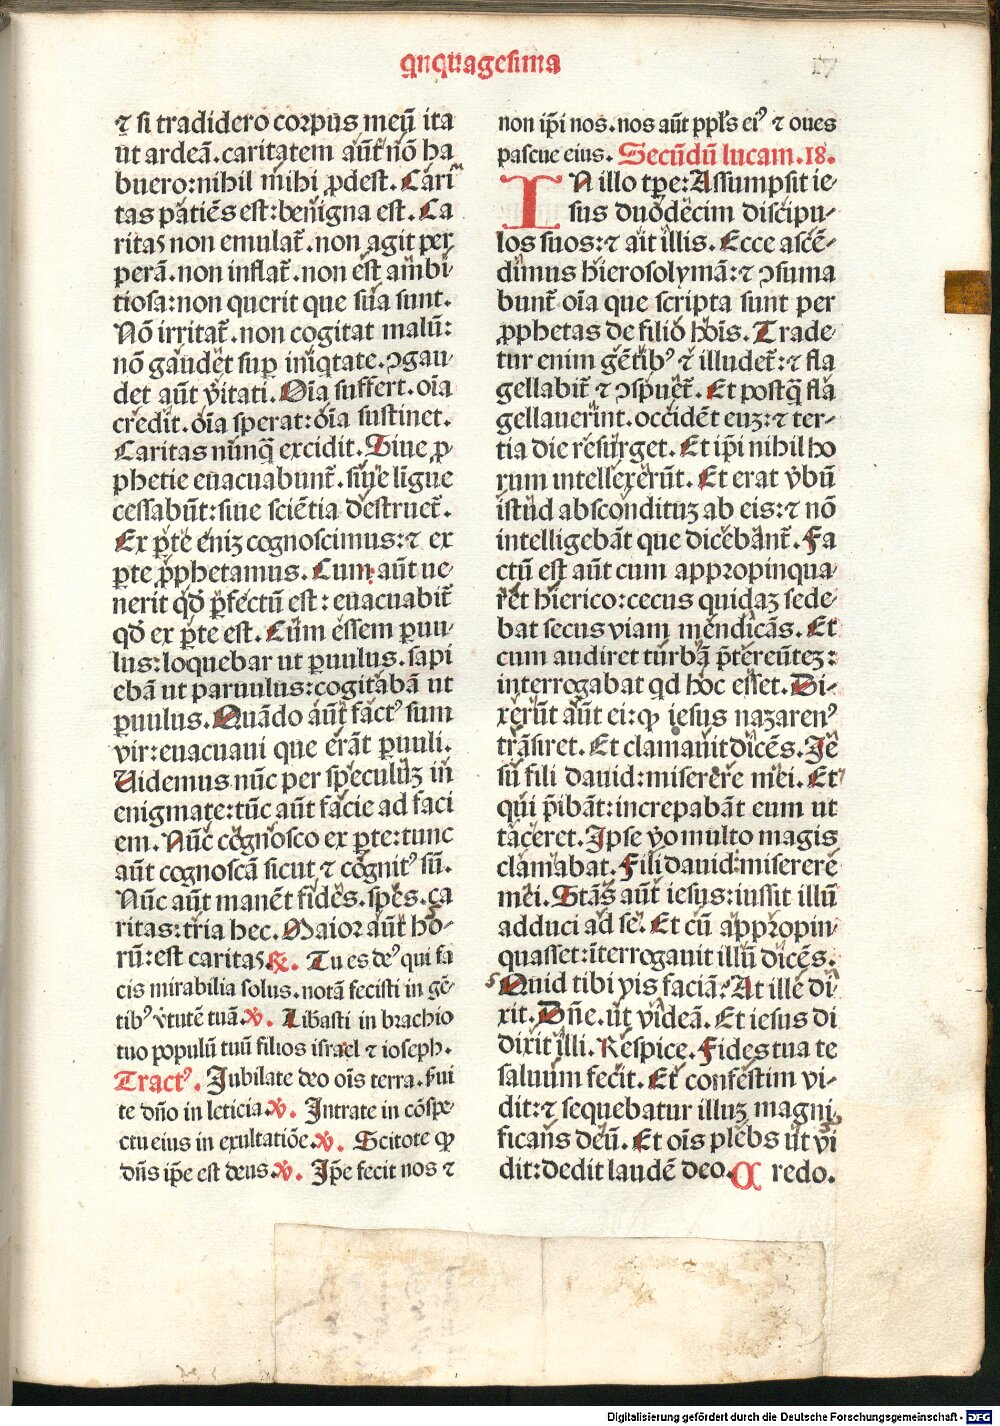 qnquagesima
17
⁊ si tradidero corpus meū ita
ut ardeā. caritatem aūt nō ha
buero: nihil mihi ꝓdest. Cari
tas patiēs est: benigna est. Ca
ritas non emulat̄. non agit per
perā. non inflat̄. non est ambi-
tiosa: non querit que sua sunt.
Nō irritat̄. non cogitat malū:
nō gaudet suꝑ iniqtate. ꝯgau-
det aūt v̄itati. Oīa suffert. oīa
credit. oīa sperat: oīa sustinet.
Caritas nunꝗ excidit. Siue ꝓ
phetie euacuabunt̄. siue ligue
cessabūt: siue sciētia destruet̄.
Ex ꝑte eniz cognoscimus: ⁊ ex
ꝑte ꝓphetamus. Cum aūt ue-
nerit qd̄ ꝑfectū est: euacuabit̄
qd̄ ex ꝑte est. Cum essem ꝑuu-
lus: loquebar ut ꝑuulus. sapi
ebā ut paruulus: cogitabā ut
ꝑuulus. Quādo aūt factꝰ sum
vir: euacuaui que erāt ꝑuuli.
Videmus nūc per speculuz in
enigmate: tūc aūt facie ad faci
em. Nūc cognosco ex ꝑte: tunc
aūt cognoscā sicut ⁊ cognitꝰ sū.
Nūc aūt manēt fides. spes. ca
ritas: tria hec. Maior aūt ho-
rū: est caritas. ℟. Tu es deꝰ qui fa
cis mirabilia solus. notā fecisti in gē-
tibꝰ v̄tutē tuā. ℣. Libasti in brachio
tuo populū tuū filios israel ⁊ ioseph.
Tractꝰ. Jubilate deo oīs terra. ẜui
te dn̄o in leticia. ℣. Intrate in cōspe-
ctu eius in exultatiōe. ℣. Scitote ꝙ
dn̄s ip̄e est deus. ℣. Ip̄e fecit nos ⁊
non ip̄i nos. nos aūt ppl̄s eiꝰ ⁊ oues
pascue eius. Secūdū lucam. 18.
IN illo tp̄e: Assumpsit ie-
sus duodecim discipu-
los suos: ⁊ ait illis. Ecce ascē-
dimus hierosolymā: ⁊ ꝯsuma
bunt̄ oīa que scripta sunt per
ꝓphetas de filio hoīs. Trade-
tur enim gētibꝰ ⁊ illudet̄: ⁊ fla
gellabit̄ ⁊ ꝯspuet̄. Et postꝗ fla
gellauerint. occidēt euz: ⁊ ter-
tia die resurget. Et ip̄i nihil ho
rum intellexerūt. Et erat v̄bū
istud abscondituz ab eis: ⁊ nō
intelligebāt que dicebant̄. Fa
ctū est aūt cum appropinqua-
ret hierico: cecus quidaz sede-
bat secus viam mendicās. Et
cum audiret turbā p̄tereūtez:
interrogabat qd hoc esset. Di-
xerūt aūt ei: ꝙ iesus nazarenꝰ
trāsiret. Et clamauit dicēs. Je
su fili dauid: miserere mei. Et
qui p̄ibāt: increpabāt eum ut
taceret. Ipse v̄o multo magis
clamabat. Fili dauid: miserere
mei. Stās aūt iesus: iussit illū
adduci ad se. Et cū appropin-
quasset: īterrogauit illū dicēs.
Quid tibi vis faciā? At ille di-
xit. Dn̄e. ut videā. Et iesus di
dixit illi. Respice. Fides tua te
saluum fecit. Et confestim vi-
dit: ⁊ sequebatur illuz magni-
ficans deū. Et oīs plebs ut vi
dit: dedit laudē deo. Credo.
Digitalisierung gefördert durch die Deutsche Forschungsgemeinschaft - DFG